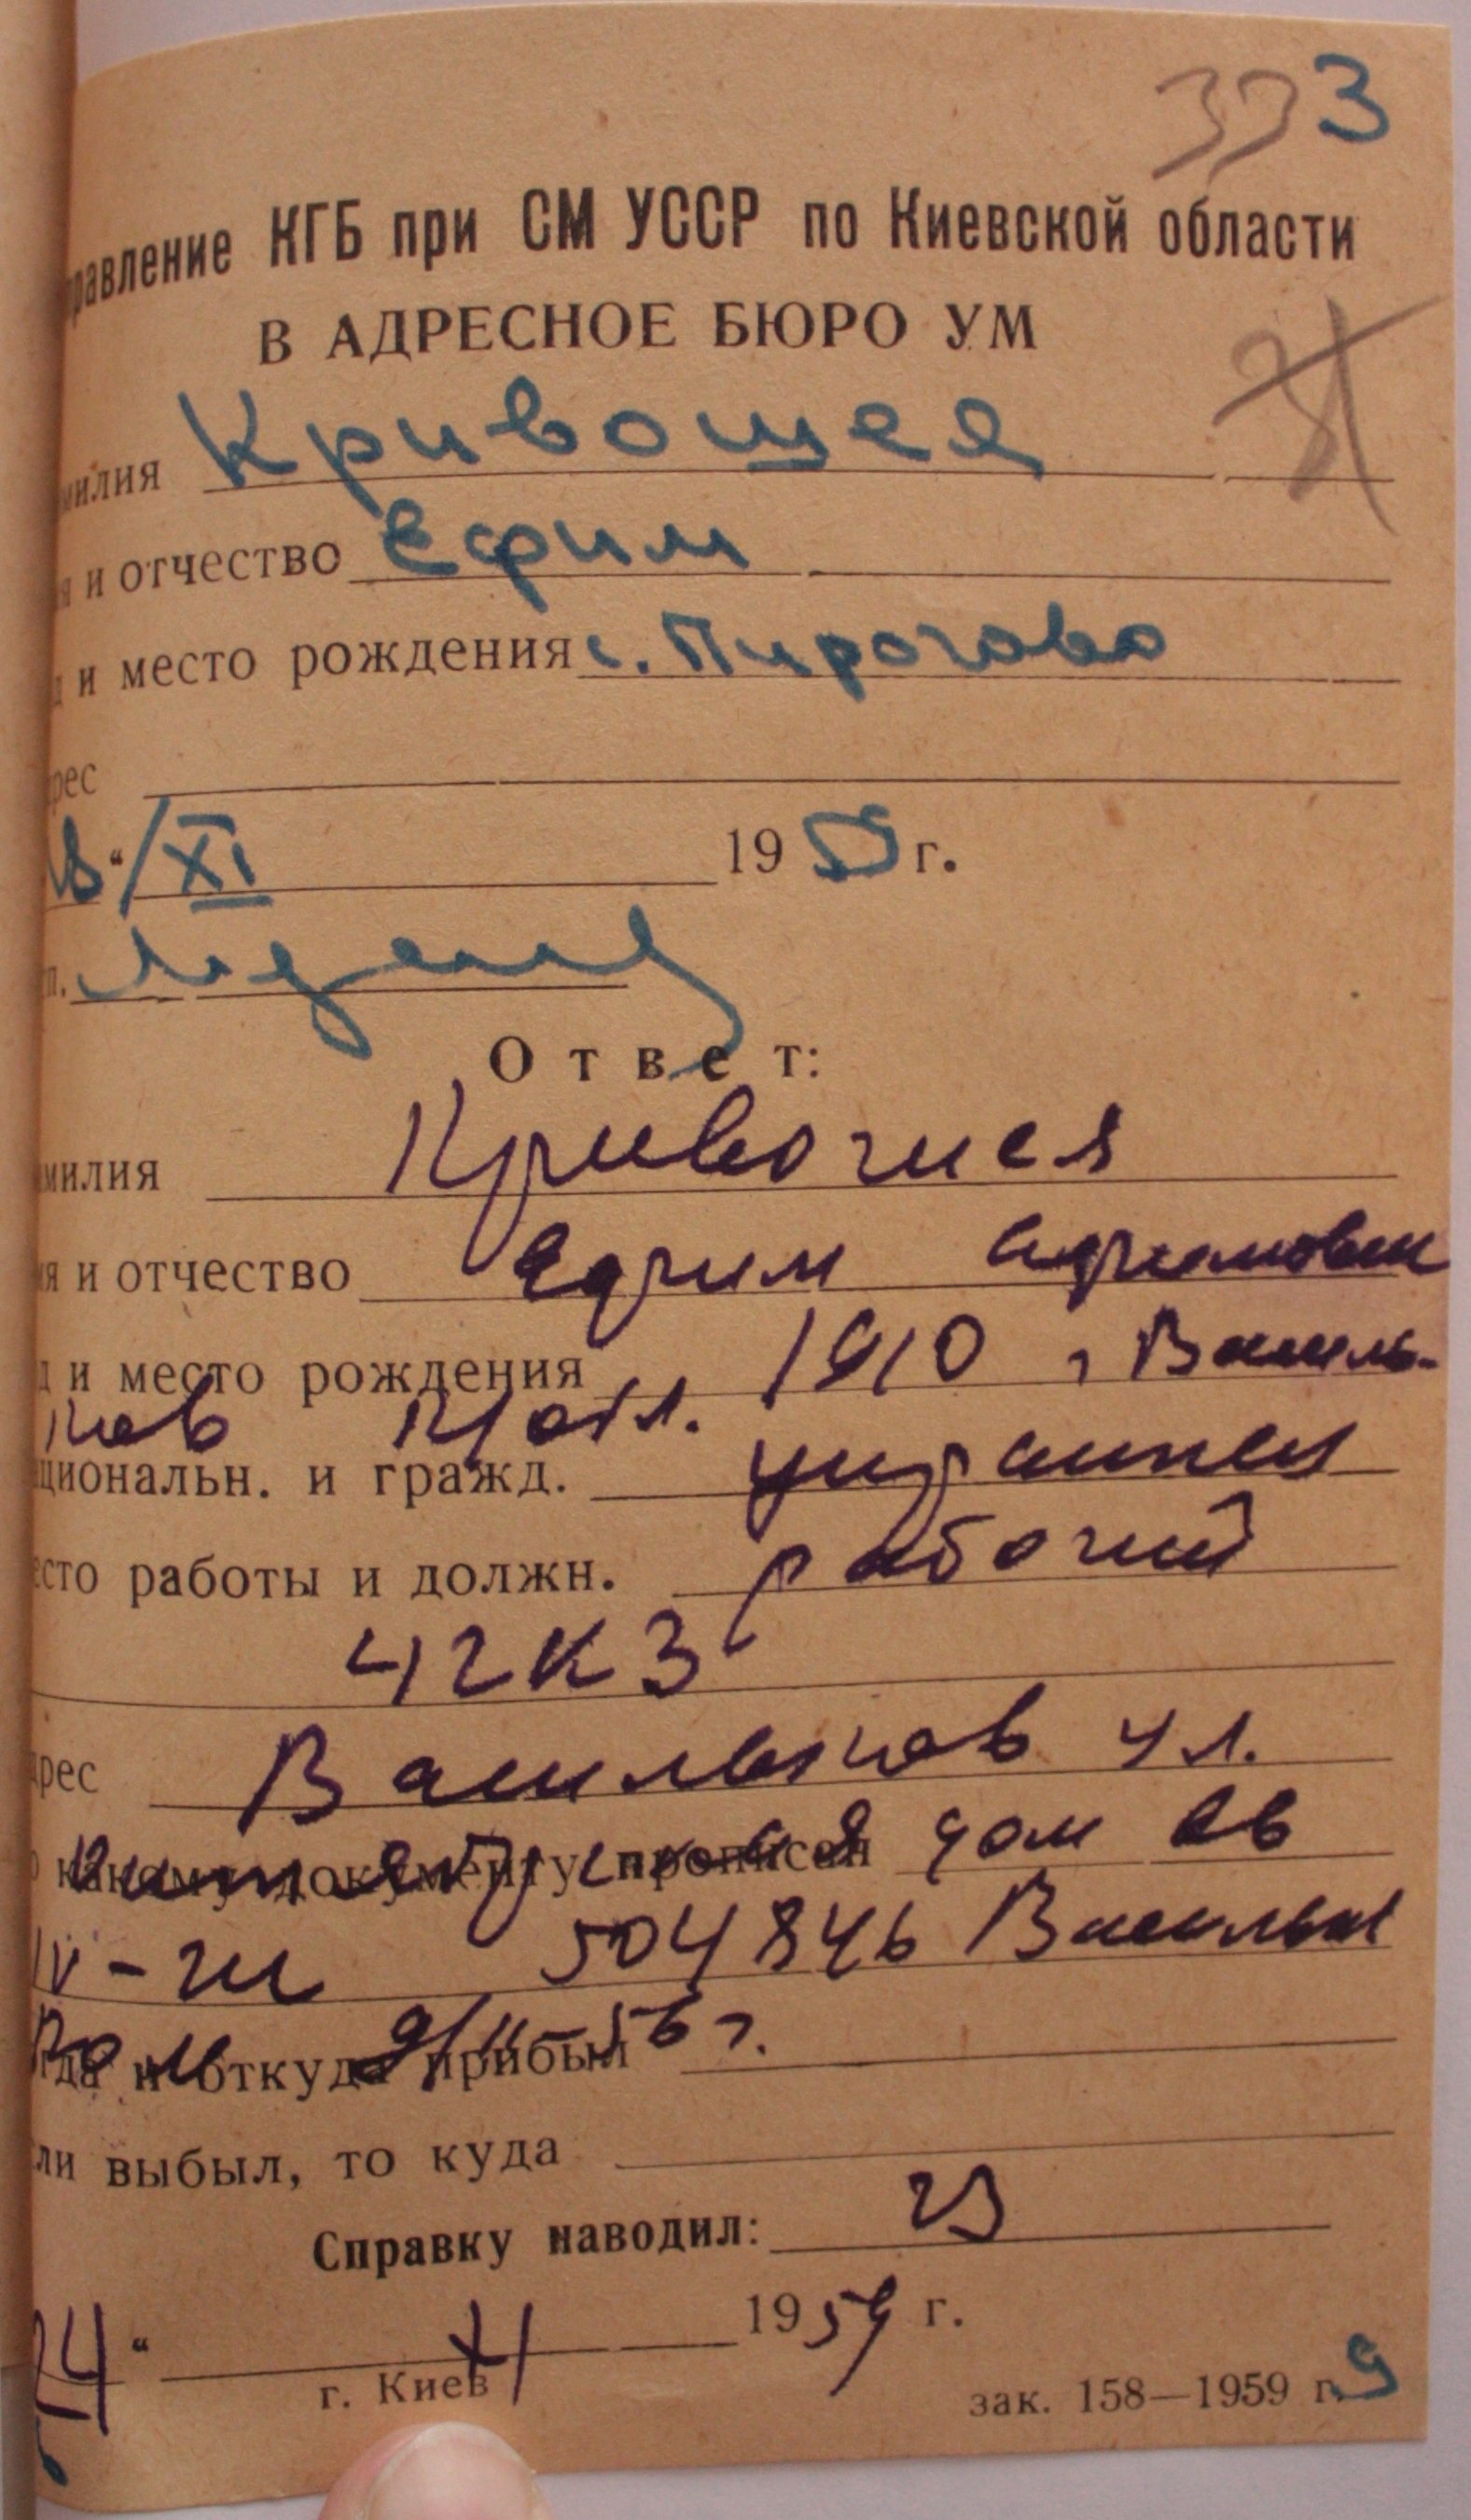 333
правление КГБ при СМ УССР по Киевской области
В АДРЕСНОЕ БЮРО УМ
милия Кривошея
я и отчество Ефим
д и место рождения с. Пирогово
рес
“ XI 1955 г.
п.
Ответ:
милия Кривошея
я и отчество Ефим Афимович
д и место рождения 1910, Василь-
ков К/обл.
циональн. и гражд. украинец
есто работы и должн. рабочий
42КЗ
дрес Васильков ул.
о какому документу прописан дом
IV-ш 504846 Васильк
РОМ 9/II-56 г.
гда и откуда прибыл
ли выбыл, то куда
Справку наводил:
24 “ XI 1959 г.
г. Киев зак. 158—1959 г. 9